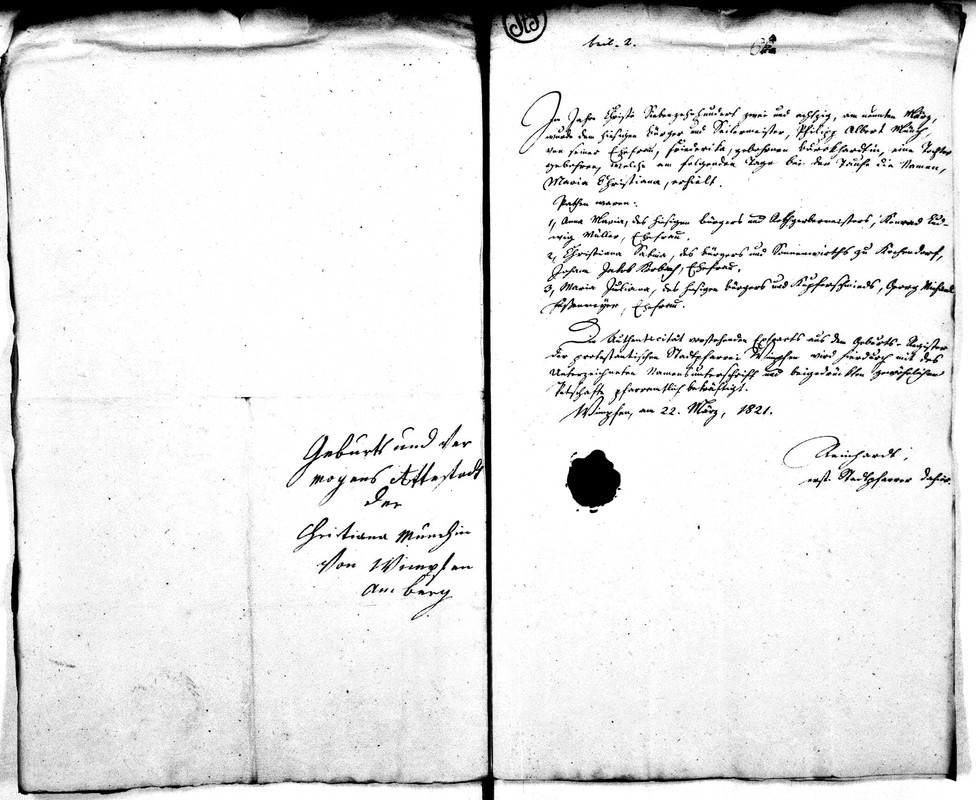 Geburts und Ver
mogens Attestadt
der
Chritiana Münchin
Von Wimpfen
am berg
beil. 2.
Im Jahr Christi Siebenzehnhundert zwei und achtzig, am neunten März,
wurde dem hiesigen Bürger und Seilermeister, Philipp Albert Münch,
von seiner Ehefrau, Friederika, gebohrnen Burckhardtin, eine Tochter
gebohren, welche am folgenden Tage bei der Taufe die Namen,
Maria Christiana, erhielt.
Pathen waren:
1, Anna Maria, des hiesigen Bürgers und Rothgerbermeisters, Konrad Lud-
wig Müller, Ehefrau.
2, Christiana Sabina, des Bürgers und Sonnenwirths zu Kochendorf,
Johann Jakob, Ehefrau.
3, Maria Juliana, des hiesigen Bürgers und Kupferschmieds, Georg Michael
Ehefrau.
Die Authenticität vorstehenden Extracts aus dem Geburts-Register
der protestantischen Stadtpfarrei Wimpfen wird hierdurch mit des
Unterzeichneten Namensunterschrift und beigedrucktem gewöhnlichen
Petschafte pfarramtlich bekräftigt.
Wimpfen, am 22. März, 1821.
Reinhardt,
erst. Stadtpfarrer daselbst.